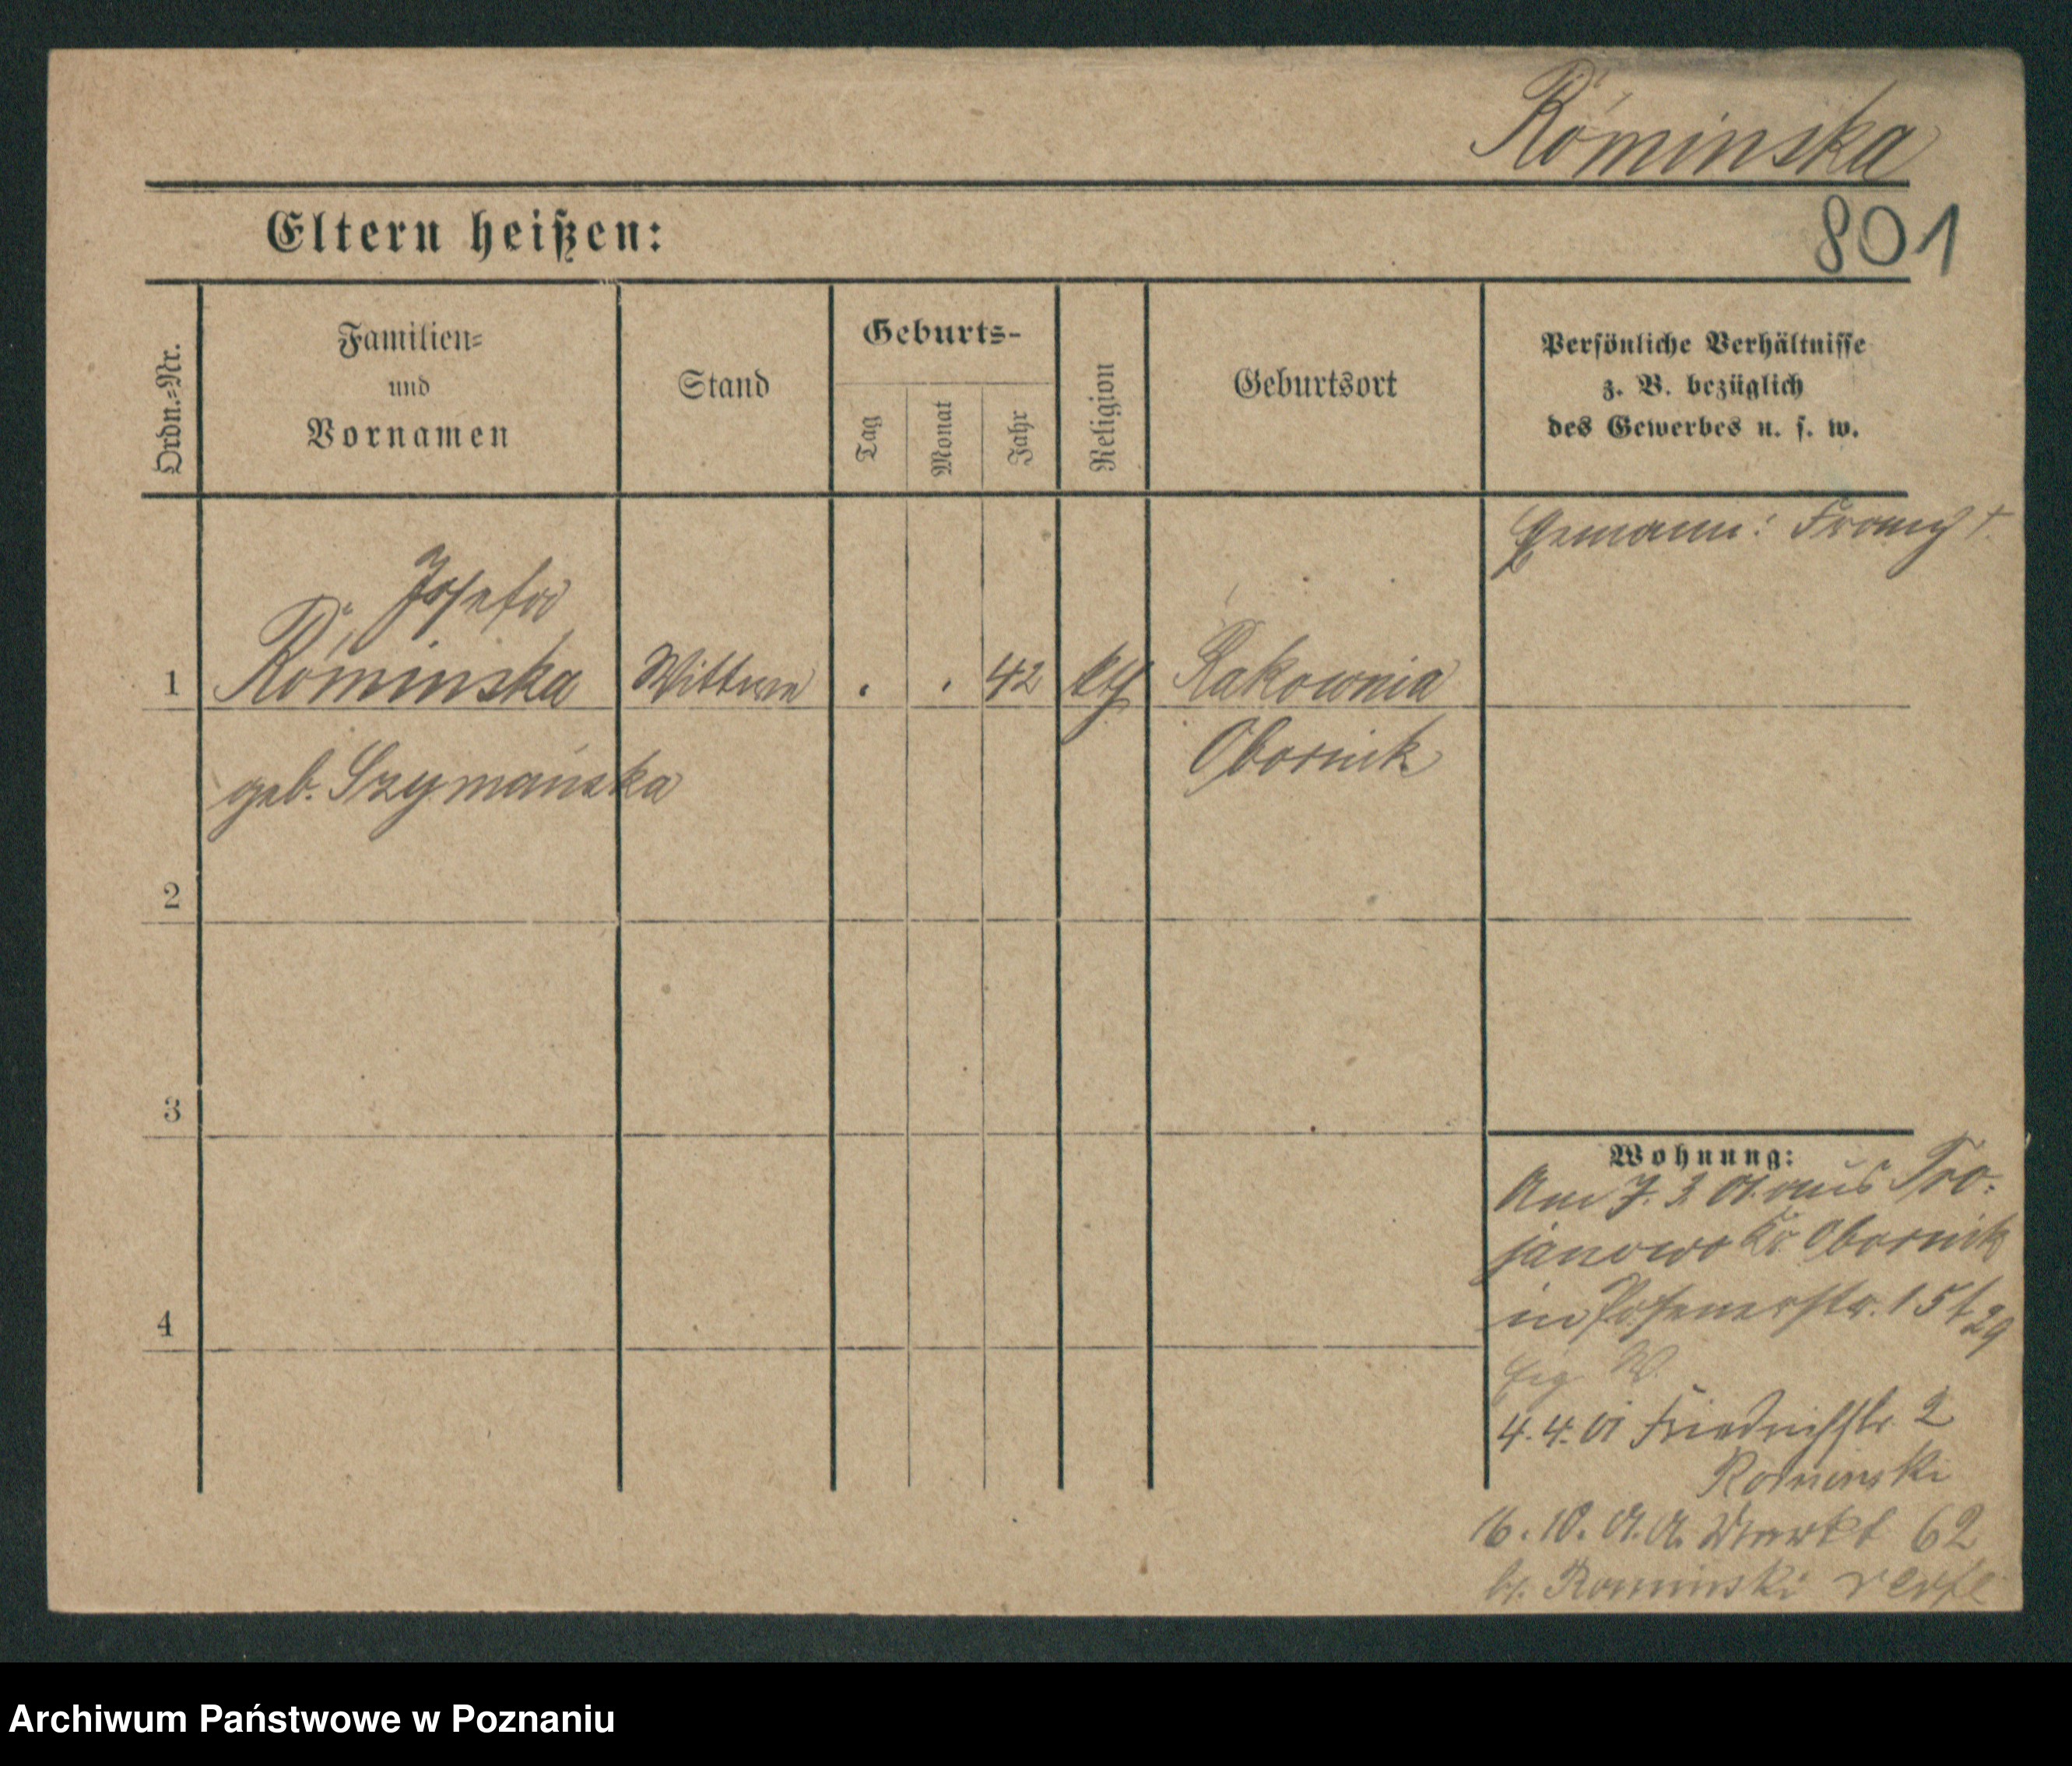 Róminska
801
Eltern heißen:
Ordn.-Nr.
Familien-
und
Vornamen
Stand
Geburts-
Tag
Monat
Jahr
Religion
Geburtsort
Persönliche Verhältnisse
z. B. bezüglich
des Gewerbes u. s. w.
Franz †
Josefa
1 Róminska Wittwe . . 42 kth Rakownia
geb. Szymańska Obornik
2
3
4
Wohnung:
Am 7. 3. 01. aus Tro-
janowo Kr. Obornik
in Posenerstr. 15
4. 4. 01 Friedrichstr. 2
Rominski
16. 10. 01. A. Markt 62
b/. Rominski
Archiwum Państwowe w Poznaniu